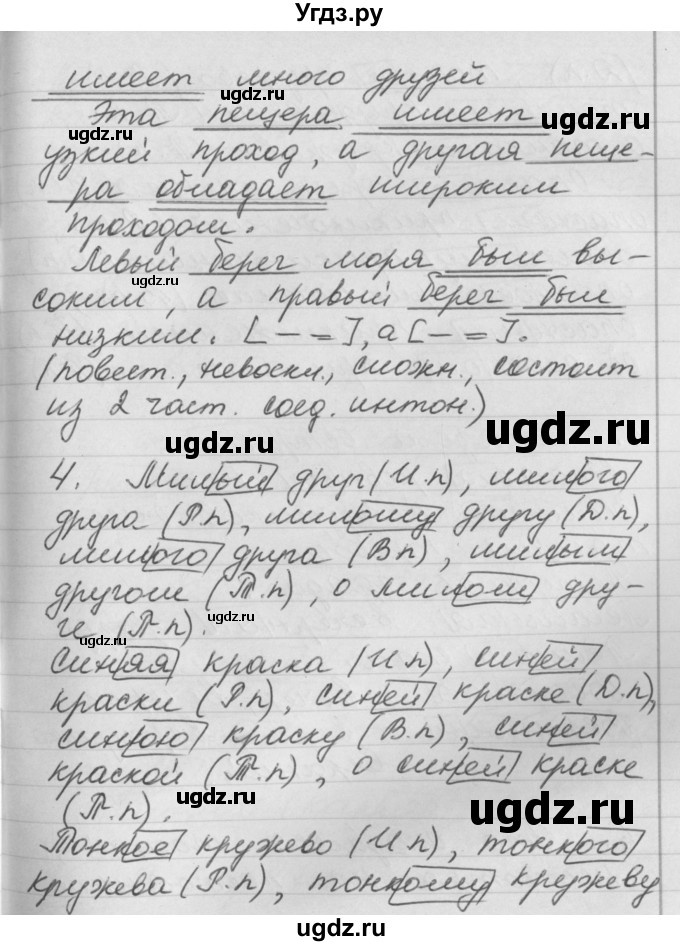 Угдз.ру
имеет много друзей
Эта пещера имеет
узкий проход, а другая пеще-
ра обладает широким
проходом.
Левый берег моря был вы-
соким, а правый берег был
низким. [— =], а [— =].
(повест., невоскл., сложн., состоит
из 2 част. соед. интон.)
4. Милый друг (И.п), милого
друга (Р.п), милому другу (Д.п),
милого друга (В.п), милым
другом (Т.п), о милом дру-
ге (П.п).
Синяя краска (И.п), синей
краски (Р.п), синей краске (Д.п),
синюю краску (В.п), синей
краской (Т.п), о синей краске
(П.п).
Тонкое кружево (И.п), тонкого
кружева (Р.п), тонкому кружеву
ugdz.ru
ugdz.ru
ugdz.ru
ugdz.ru
ugdz.ru
ugdz.ru
ugdz.ru
ugdz.ru
ugdz.ru
ugdz.ru
ugdz.ru
ugdz.ru